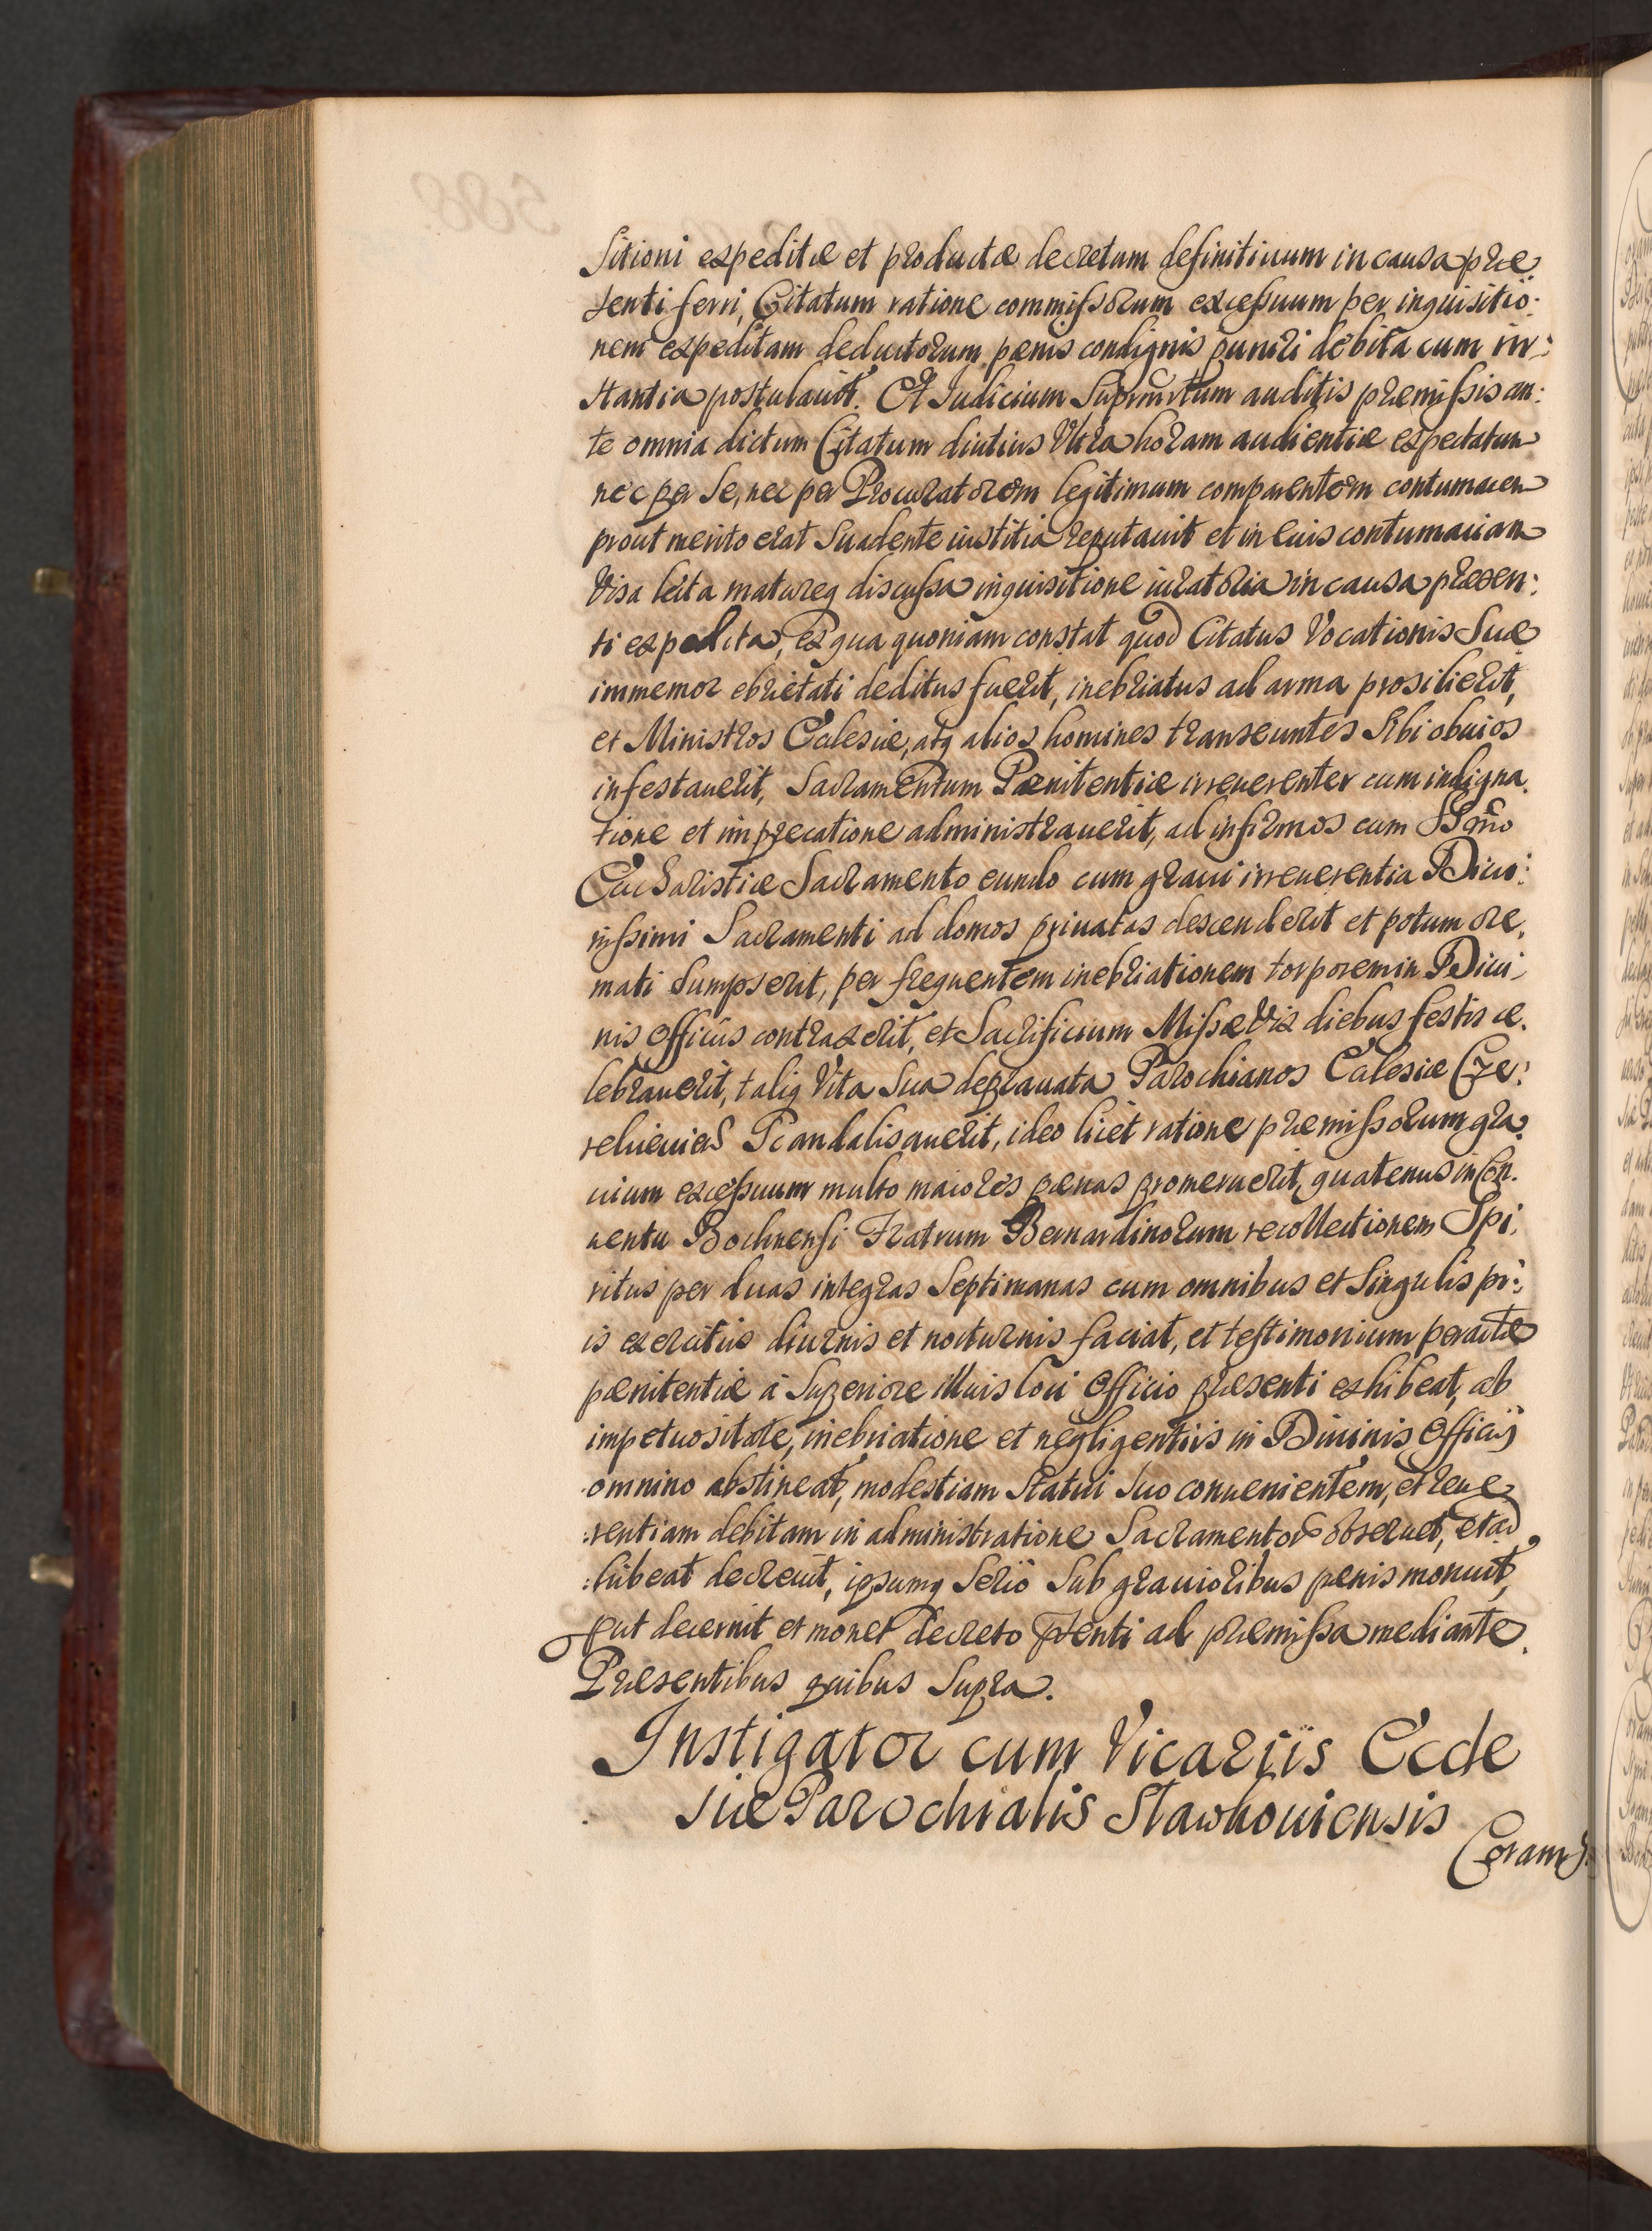 sitioni expeditæ et productæ decretum definitiuum in causa præ:
senti ferri, Citatum ratione commissorum excessuum per inquisitio:
nem expeditam deductorum pænis condignis puniri debita cum in:
stantia postulauit. Et Iudicium auditis præmissis an:
te omnia dictum Citatum diutius Vltra horam audientiæ expectatum
nec per se, nec per Procuratorem legitimum comparentem contumacem
prout merito erat suadente iustitia reputauit et in euis contumaciam
Visa lecta matureq discussa inquisitione iuratoria in causa præsen:
ti expedita, ex qua quoniam constat quod Citatus Vocationis suæ
immemor ebrietati deditus fuerit, inebriatus ad arma prosilierit,
et Ministros Ecclesiæ, atq alios homines transeuntes sibi obuios
infestauerit, Sacramentum Pænitentiæ irreuerenter cum indigna:
tione et imprecatione administrauerit, ad infirmos cum SSmo
Eucharistiæ Sacramento eundo cum graui irreuerentia Diui:
nissimi Sacramenti ad domos priuatas descenderit et potum cre:
mati sumpserit, per frequentem inebriationem torporem in Diui:
nis Officiis contraxerit, et Sacrificium Missæ Vix diebus festis ce:
lebrauerit, taliq Vita sua deprauata Parochianos Ecclesiæ Cze:
reluieuien Scandalisauerit, ideo licet ratione præmissorum gra:
uium excessuum multo maiores pænas promeruerit, quatenus in Con:
uentu Bochnensi Fratrum Bernardinorum recollectionem Spi:
ritus per duas integras Septimanas cum omnibus et singulis pi:
is exercitiis diurnis et nocturnis faciat, et testimonium peractæ
pænitentiæ à Superiore illius loci Officio præsenti exhibeat, ab
impetuositate, inebriatione et negligentiis in Diuinis Officiis
omnino abstineat, modestiam statui suo conuenientem, et reue
:rentiam debitam in administratione Sacramentor obseruet, et ad
:hibeat decreuit, ipsumq serio sub grauioribus pænis monuit,
put decernit et monet decreto pnti ad præmissa mediante.
Præsentibus quibus supra.
Instigator cum Vicariis Eccle
siæ Parochialis Slawkouiensis
Coram